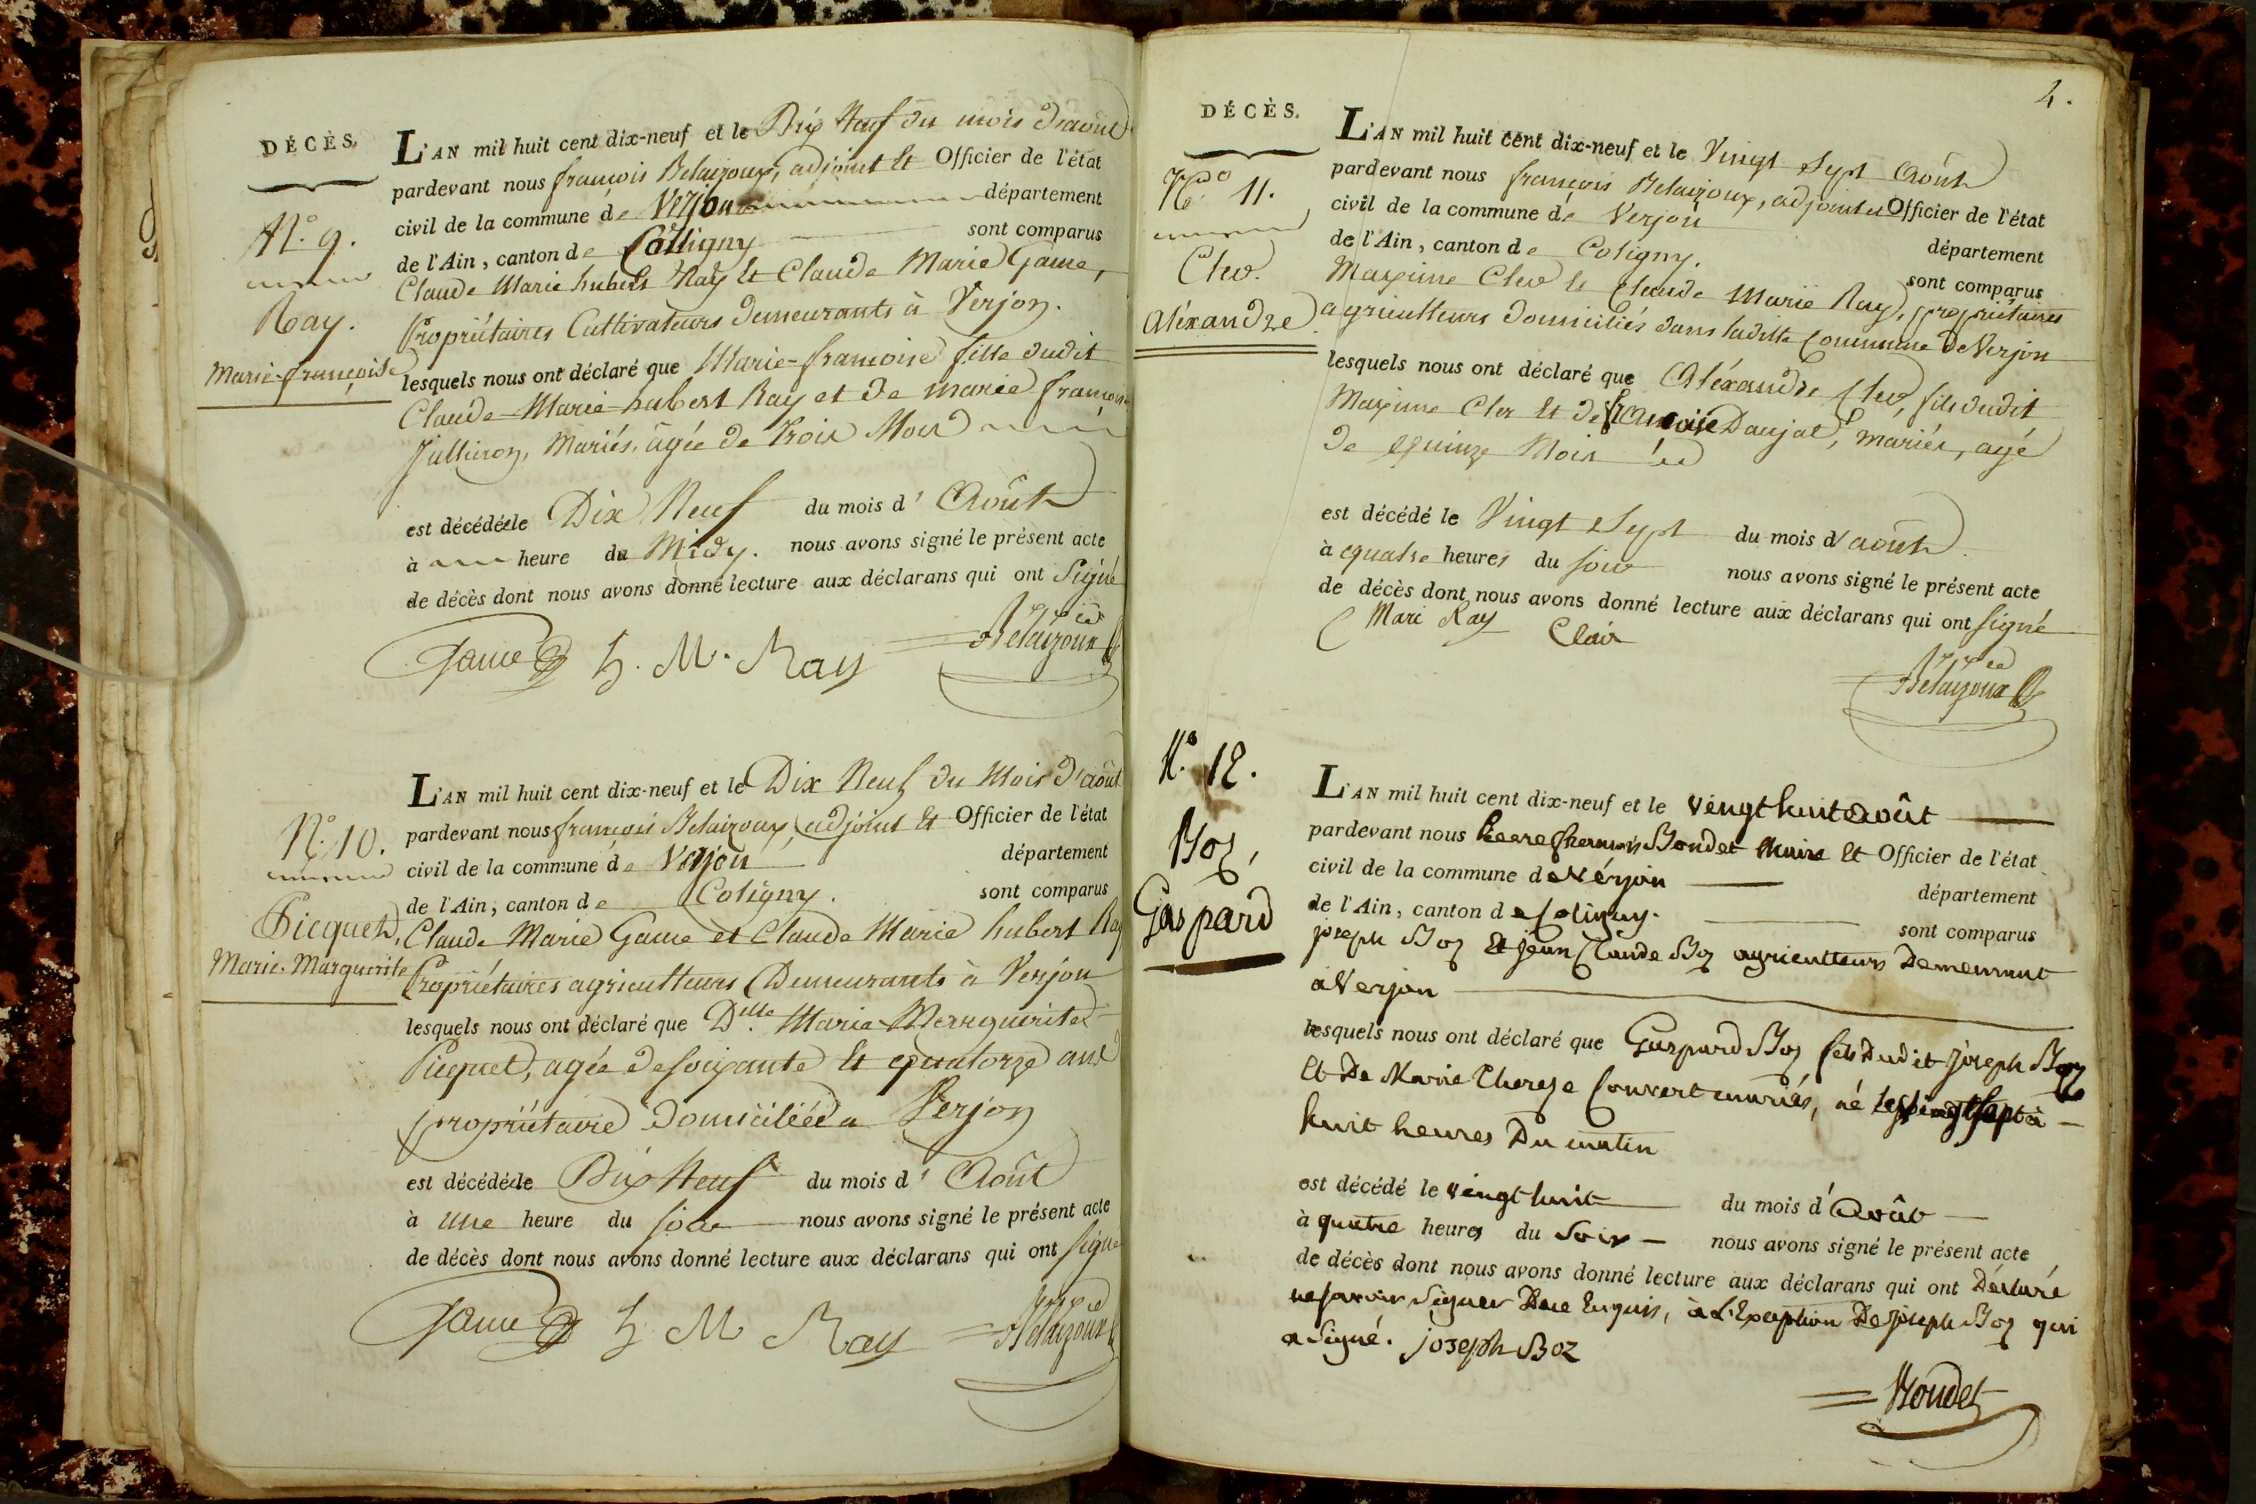 DÉCÈS.
N.° 9.
Ray.
Marie-françoise
L'AN mil huit cent dix-neuf et le Dix Neuf du mois d'août
pardevant nous françois Belaizoux, adjoint et Officier de l'état
civil de la commune de Verjon département
de l'Ain, canton de Colligny sont comparus
Claude Marie hubert Ray et Claude Marie Game,
Propriétaires Cultivateurs demeurants à Verjon.
lesquels nous ont déclaré que Marie-francoise fille dudit
Claude-Marie-hubert Ray et de marie françoise
mariés, agée de trois Mois
est décédée le Dix Neuf du mois d' Août
à heure du Midy. nous avons signé le présent acte
de décès dont nous avons donné lecture aux déclarans qui ont Signé
Game h. M. Ray Belaizoux
N.° 10.
Picquet,
Marie-Marguerite
L'AN mil huit cent dix-neuf et le Dix Neuf du Mois d'août
pardevant nous françois Belaizoux, adjoint et Officier de l'état
civil de la commune de Verjon département
de l'Ain, canton de Coligny. sont comparus
Claude Marie Game et Claude Marie hubert Ray
Propriétaires agriculteurs Demeurants à Verjon
lesquels nous ont déclaré que Dlle Marie-Marguerite
Picquet, agée de soixante et quatorze ans
propriétaire domiciliée a Verjon
est décédée le Dix Neuf du mois d' Août
à une heure du soir nous avons signé le présent acte
de décès dont nous avons donné lecture aux déclarans qui ont signé
Game h. M Ray Belaizoux
4.
DÉCÈS.
N.° 11.
Cler.
Aléxandre
L'AN mil huit cent dix-neuf et le Vingt Sept Août
pardevant nous françois Belaizoux, adjoint et Officier de l'état
civil de la commune de Verjon
département
de l'Ain, canton de Coligny.
sont comparus
Maxime Cler et Claude Marie Ray, propriétaires
agriculteurs domiciliés dans ladite Commune de Verjon
lesquels nous ont déclaré que Aléxandre Cler, fils dudit
Maxime Cler et de francoise Daujat, mariés, agé
de quinze Mois
est décédé le Vingt Sept du mois d'août
à quatre heures du soir nous avons signé le présent acte
de décès dont nous avons donné lecture aux déclarans qui ont signé
Mari Ray Clair
Belaizoux
N.° 12.
Boz,
Gaspard
L'AN mil huit cent dix-neuf et le vingt huit août
pardevant nous Pierre Bondet Maire et Officier de l'état
civil de la commune de Vérjon département
de l'Ain, canton de Coligny. sont comparus
joseph Boz et jean Claude Boz agriculteurs Demeurant
à Verjon
lesquels nous ont déclaré que Gaspard Boz fils dudit joseph Boz
et De Marie Therese Convert mariés, né le vingt sept à
huit heures Du matin
est décédé le vingt huit du mois d'août
à quatre heures du soir nous avons signé le présent acte
de décès dont nous avons donné lecture aux déclarans qui ont Déclaré
ne savoir signer De ce Enquis, à L'Exception De joseph Boz qui
a signé. joseph Boz
Bondet